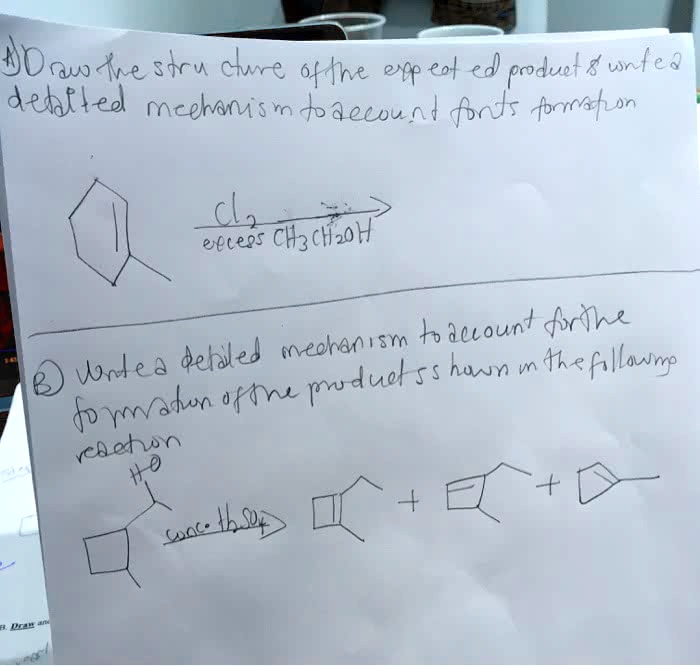 A) Draw the structure of the expected product & write a
detailed mechanism to account for its formation
Cl2
excess CH3CH2OH
B) Write a detailed mechanism to account for the
formation of the products shown in the following
reaction
HO
conc. H2SO4
+
+
B. Draw and